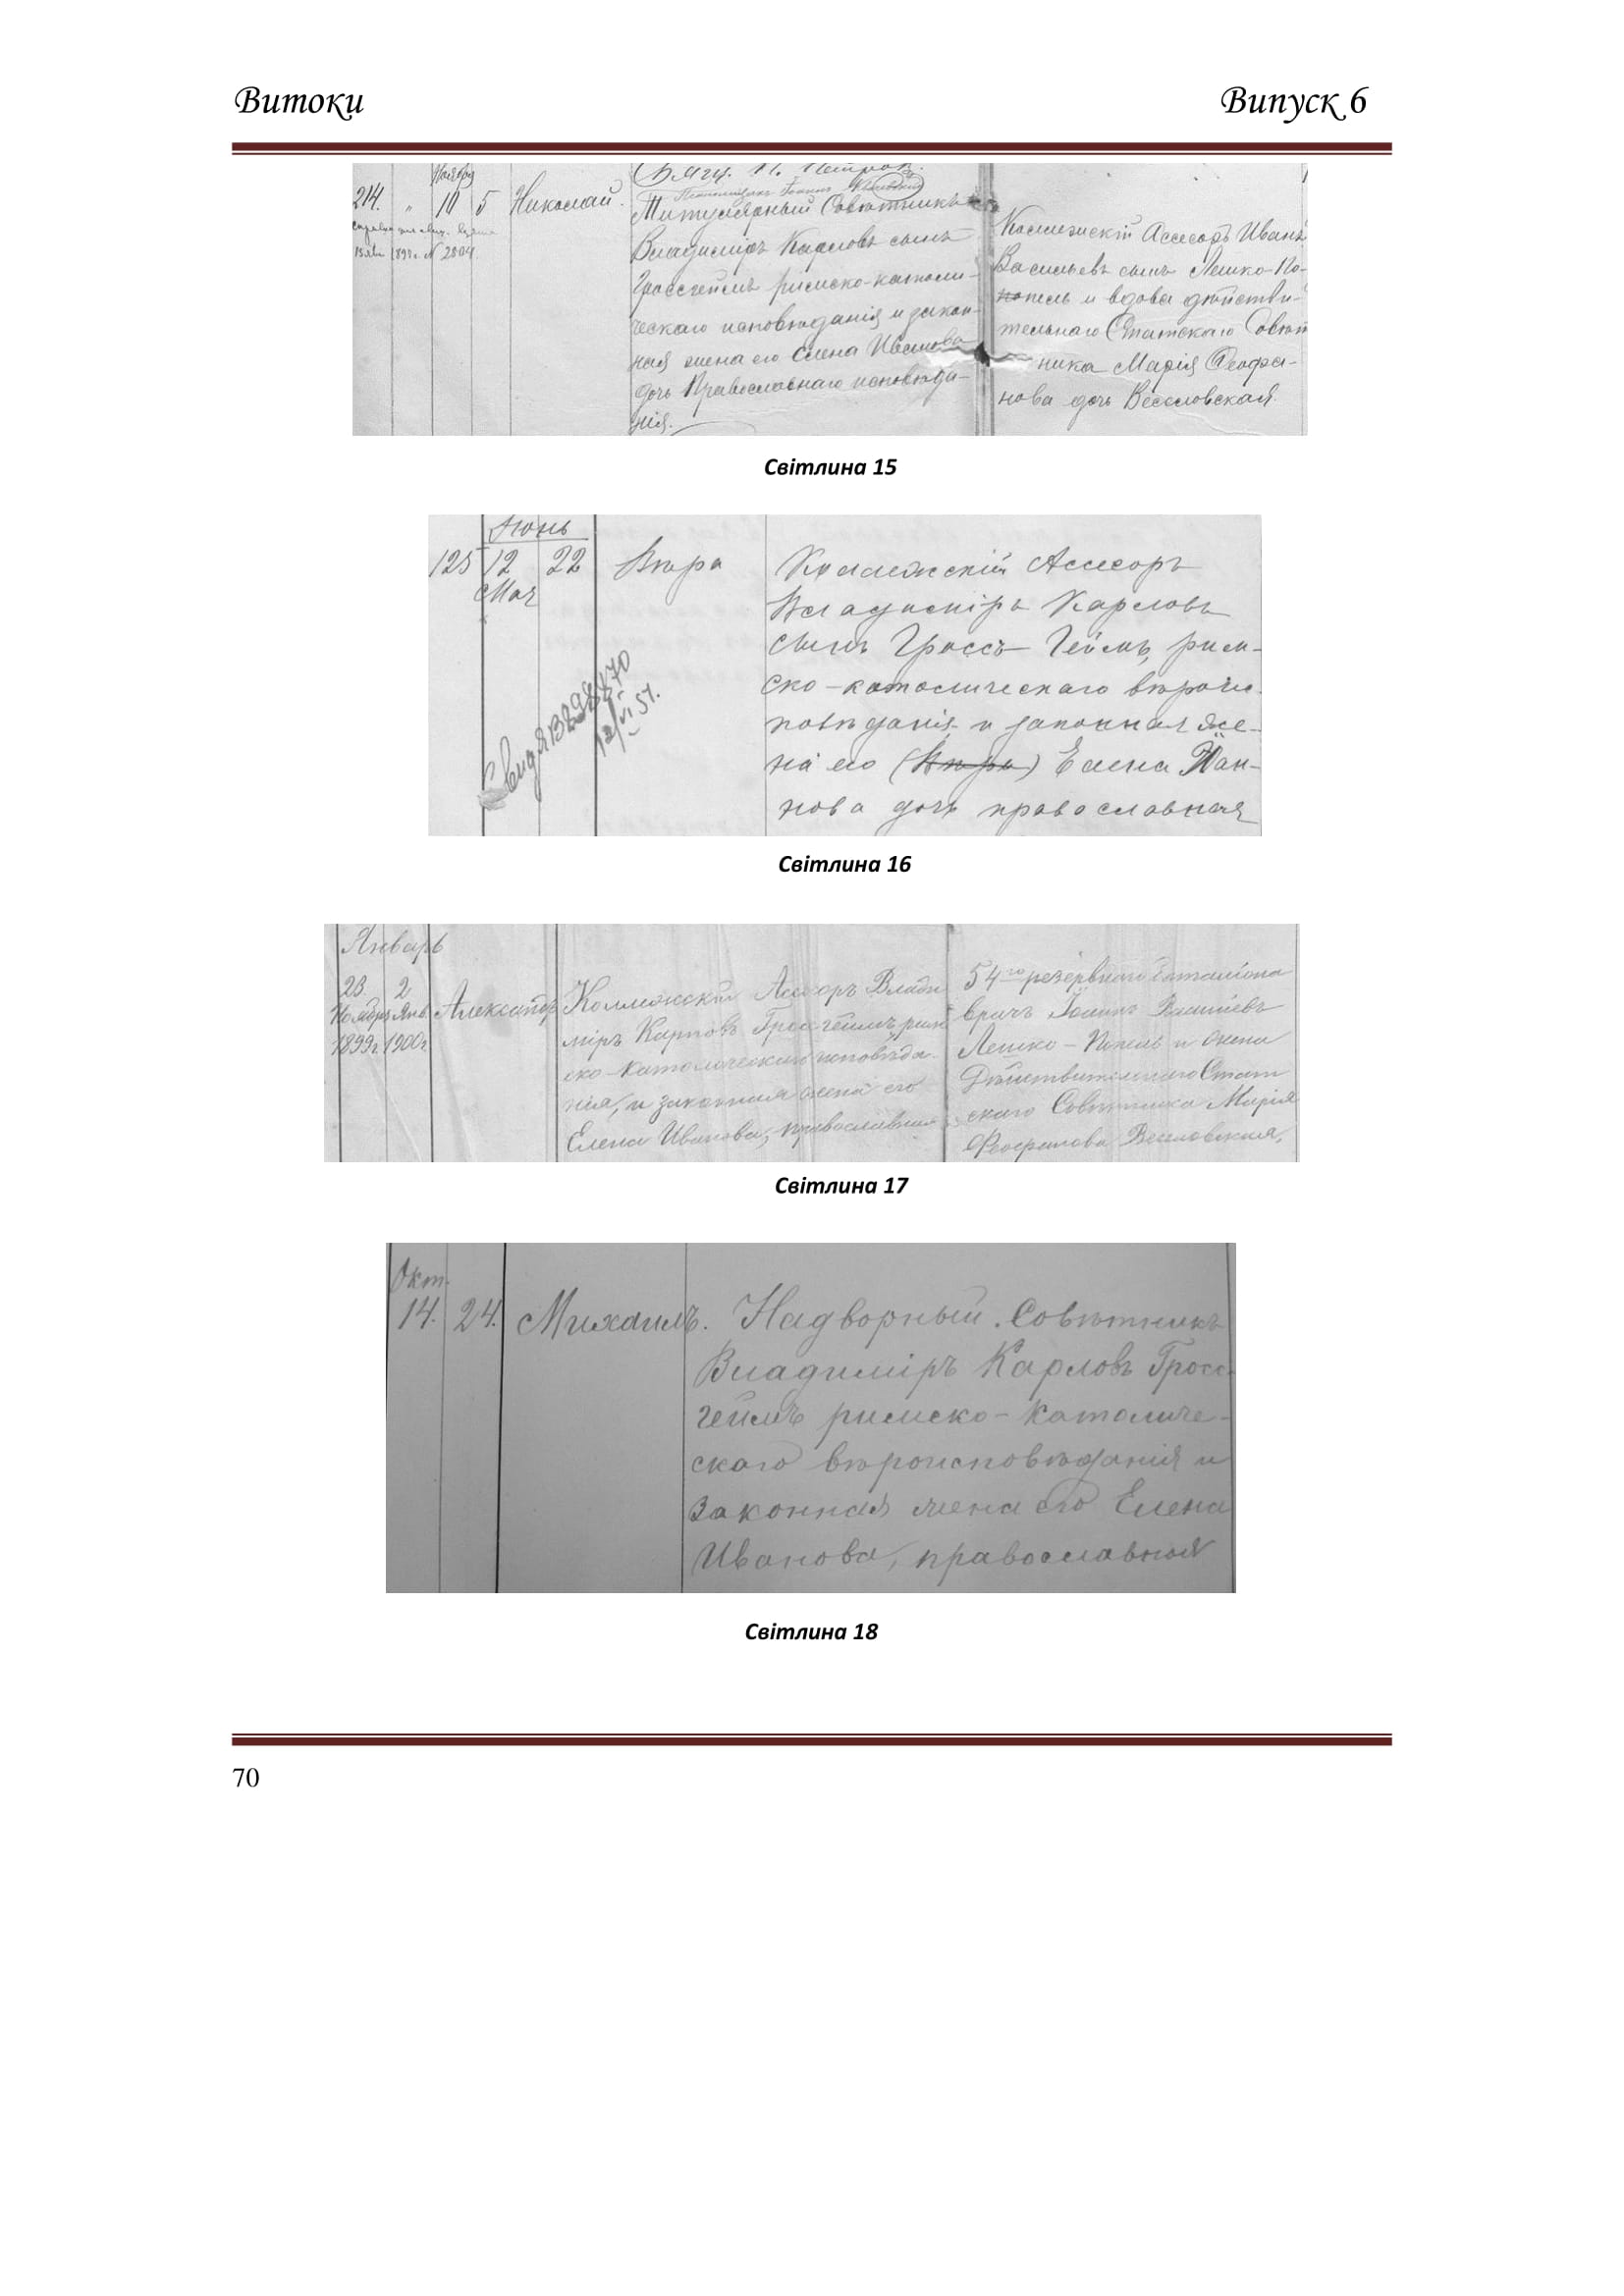 Витоки Випуск 6
Ноябрь
214. " 10 5 Николай.
Титулярный Совѣтникъ
Владиміръ Карловъ сынъ
Гроссгеймъ римско-католи-
ческаго исповѣданія и закон-
ная жена его Елена Иванова
дочь Православнаго исповѣда-
нія.
Коллежскій Ассесоръ Иванъ
Васильевъ сынъ Лешко-По-
попель и вдова дѣйстви-
тельнаго Статскаго Совѣт
ника Марія Феофа-
нова дочь Веселовская.
Світлина 15
Іюнь
125 12 22 Вѣра
Мая
Коллежскій Ассесоръ
Владиміръ Карловъ
сынъ Гроссъ-Геймъ, рим-
ско-католическаго вѣрои-
повѣданія и законная же-
на его (Вѣра) Елена Иван-
нова дочь православная
Світлина 16
Январь
23. 2 Александръ
Ноября Янв.
1899г. 1900г.
Коллежскій Ассесоръ Влади
міръ Карловъ Гроссгеймъ, рим
ско-католическаго исповѣда-
нія, и законная жена его
Елена Иванова, православная
54го резервнаго баталіона
врачъ Іоаннъ Васильевъ
Лешко-Попель и жена
Дѣйствительнаго Стат
скаго Совѣтника Марія
Феофилова Веселовская,
Світлина 17
Окт.
14. 24. Михаилъ.
Надворный Совѣтникъ
Владиміръ Карловъ Гросс-
геймъ римско-католиче-
скаго вѣроисповѣданія и
законная жена его Елена
Иванова, православная
Світлина 18
70